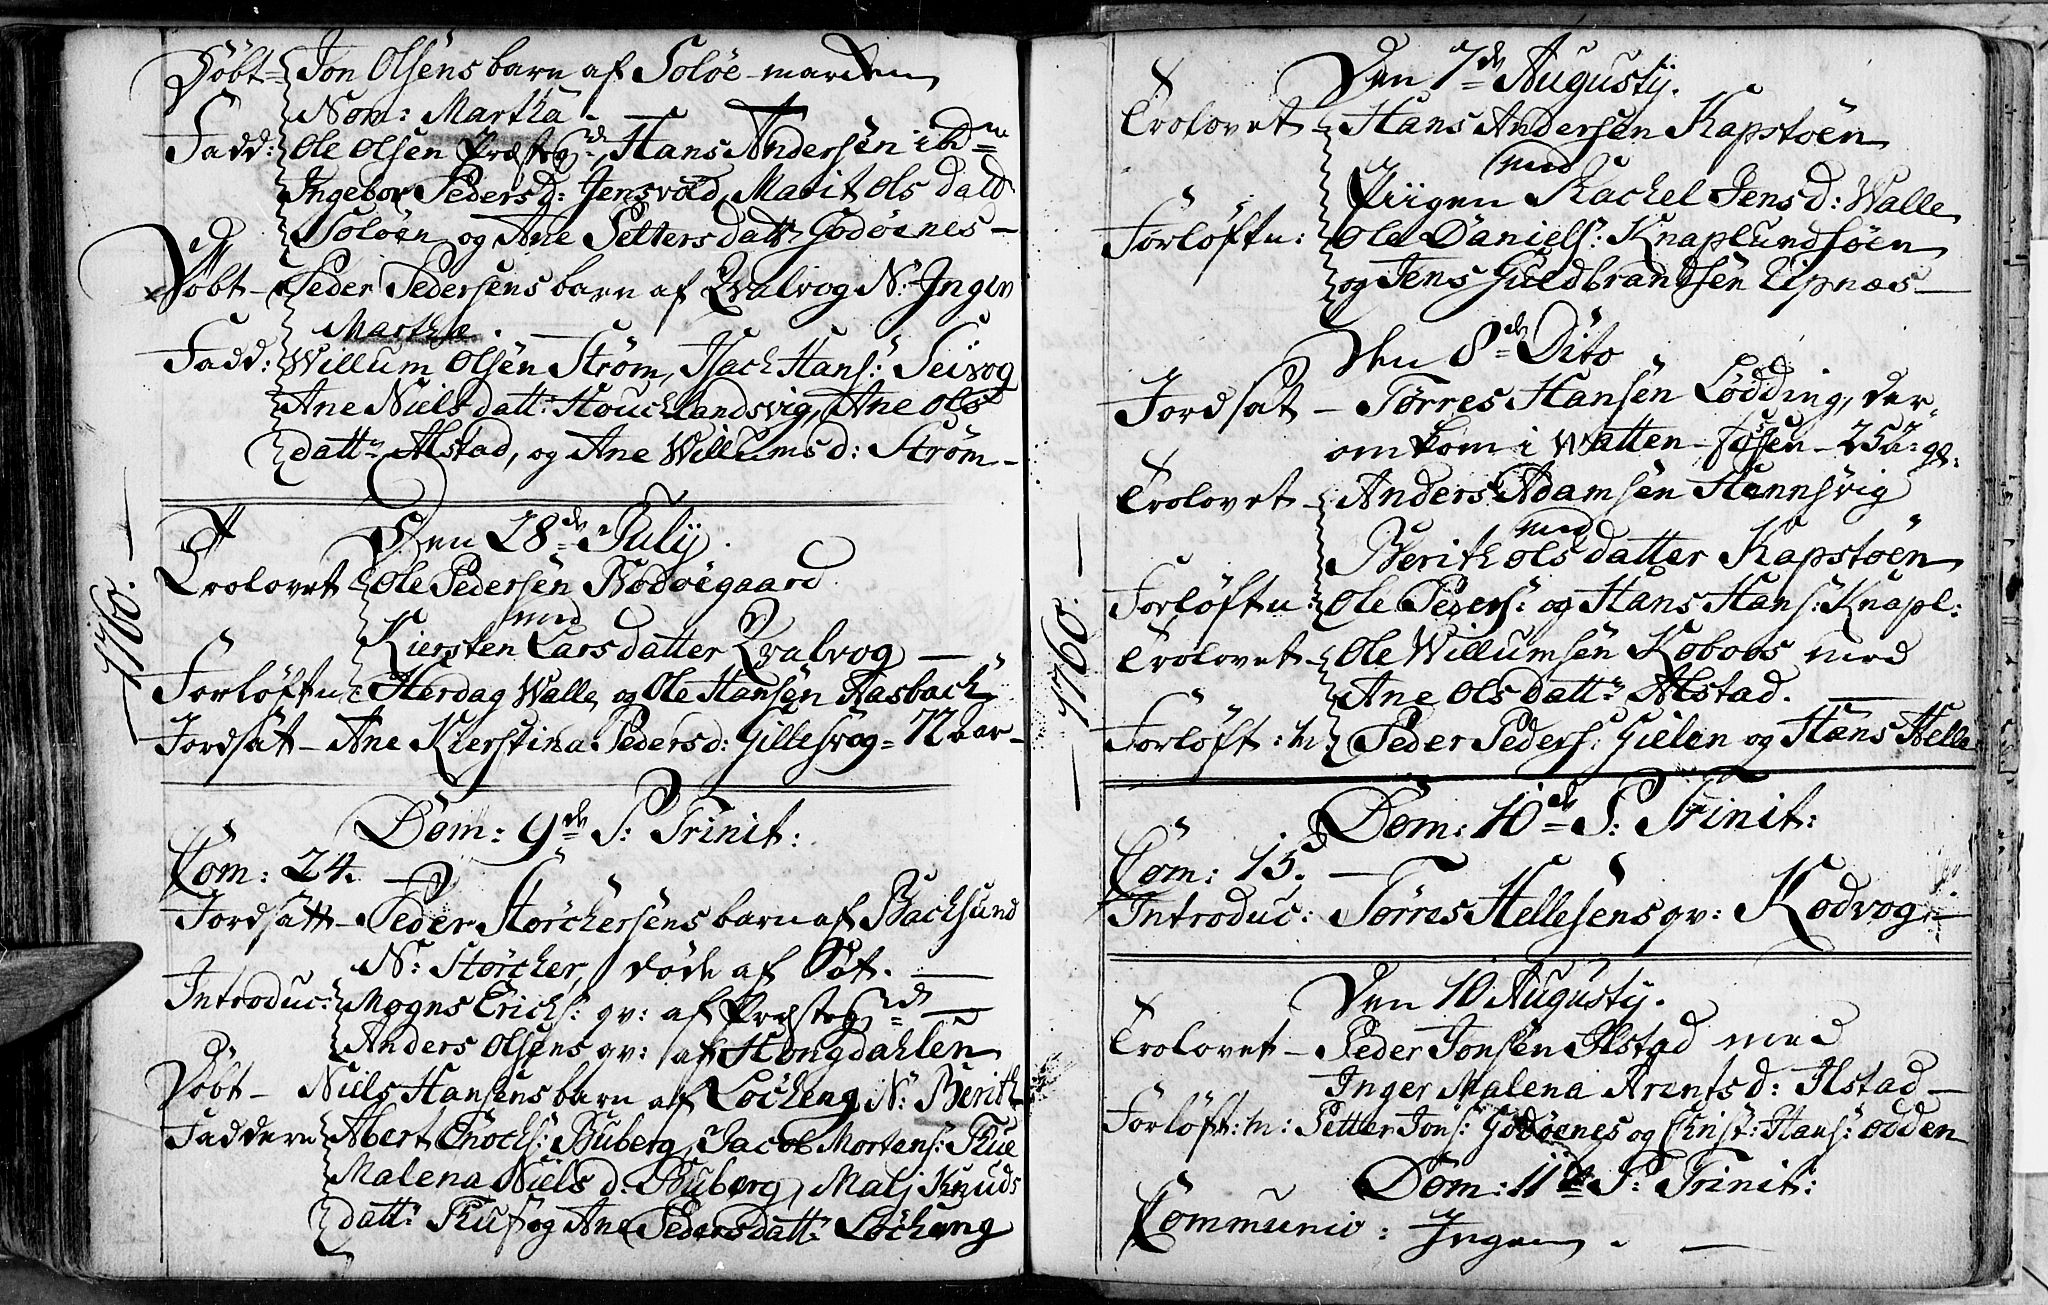 Döbt = Jon Olsens barn af Soløe marken
Nom: Martha.
Fadd: Ole Olsen Præsteg:d, Hans Andersen ibd:m
Ingebor Pedersd: Jensvold, Marit Olsdatt
Soløen og Ane Pettersdatt: Godøenes —
Döbt — Peder Pedersens barn af Qvalvog N: Inger
Martha. —
Fadd: Willum Olsen Strøm, Isach Hans: Seivog
Ane Nielsdatt: Houchlandsvig, Ane Ols
datt:r Alstad, og Ane Willumsd: Strøm —
1760.
Den 28de July.
Trolovet Ole Pedersen Bodøegaard
med
Kiersten Larsdatter Qvalvog —
Forløftn: Herdag Walle og Ole Hansen Aasbach
Jordsat — Ane Kierstina Pedersd: Gillesvog = 72 aar —
Dom: 9de P: Trinit:
Com: 24. —
Jordsatt — Peder Störchersens barn af Bachsund
N: Störcher, døde af Sot. —
Introduc: Mogns Erichs: qv: af Præsteg:d —
Anders Olsens qv: af Hongdahlen
Döbt — Niels Hansens barn af Löcheng N: Berith
Faddere Abert Enochs: Buberg, Jacob Mortens: Tue
Malena Nielsd: Buberg, Malj Knuds
datt: Tuf og Ane Pedersdatt: Löcheng
Den 7de Augusty.
Trolovet — Hans Andersen Kapstøen
med
Piigen Rachel Jensd: Walle
Forløftn: Ole Daniels: Knaplundsøen
og Jens Guldbrandsen Lipnæs —
Den 8de Dito
Jordsat — Tørres Hansen Lødding, der
omkom i Watten-fossen — 25 a: gl:
1760.
Trolovet — Anders Adamsen Hannsvig
med
Berith Olsdatter Kapstøen
Forløftn: Ole Peders: og Hans Hans: Knapl:
Trolovet — Ole Willumsen Koboes med
Ane Olsdatt:r Alstad. —
Forløft:n: Peder Peders: Gielen og Hans Helle
Dom: 10de P: Trinit:
Com: 15. —
Introduc: Tørres Hellesens qv: Kodvog —
Den 10 Augusty.
Trolovet — Peder Jonsen Ilstad med
Inger Malena Arentsd: Ilstad —
Forløft:n: Petter Jons: Godøenes og Christ: Hans: Odden
Dom: 11te P: Trinit:
Communio: Ingen. —